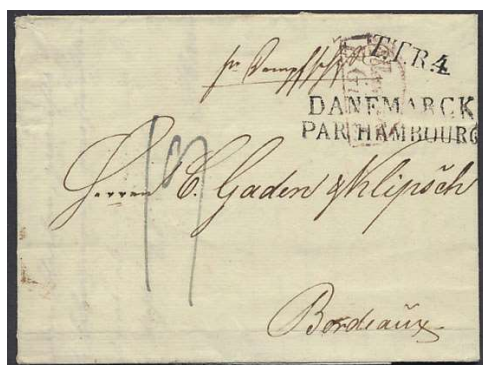 pr Dampfschiff
T.T.R.4
DANEMARCK
PAR HAMBOURG
Herren C. Gaden & Klipsch
Bordeaux